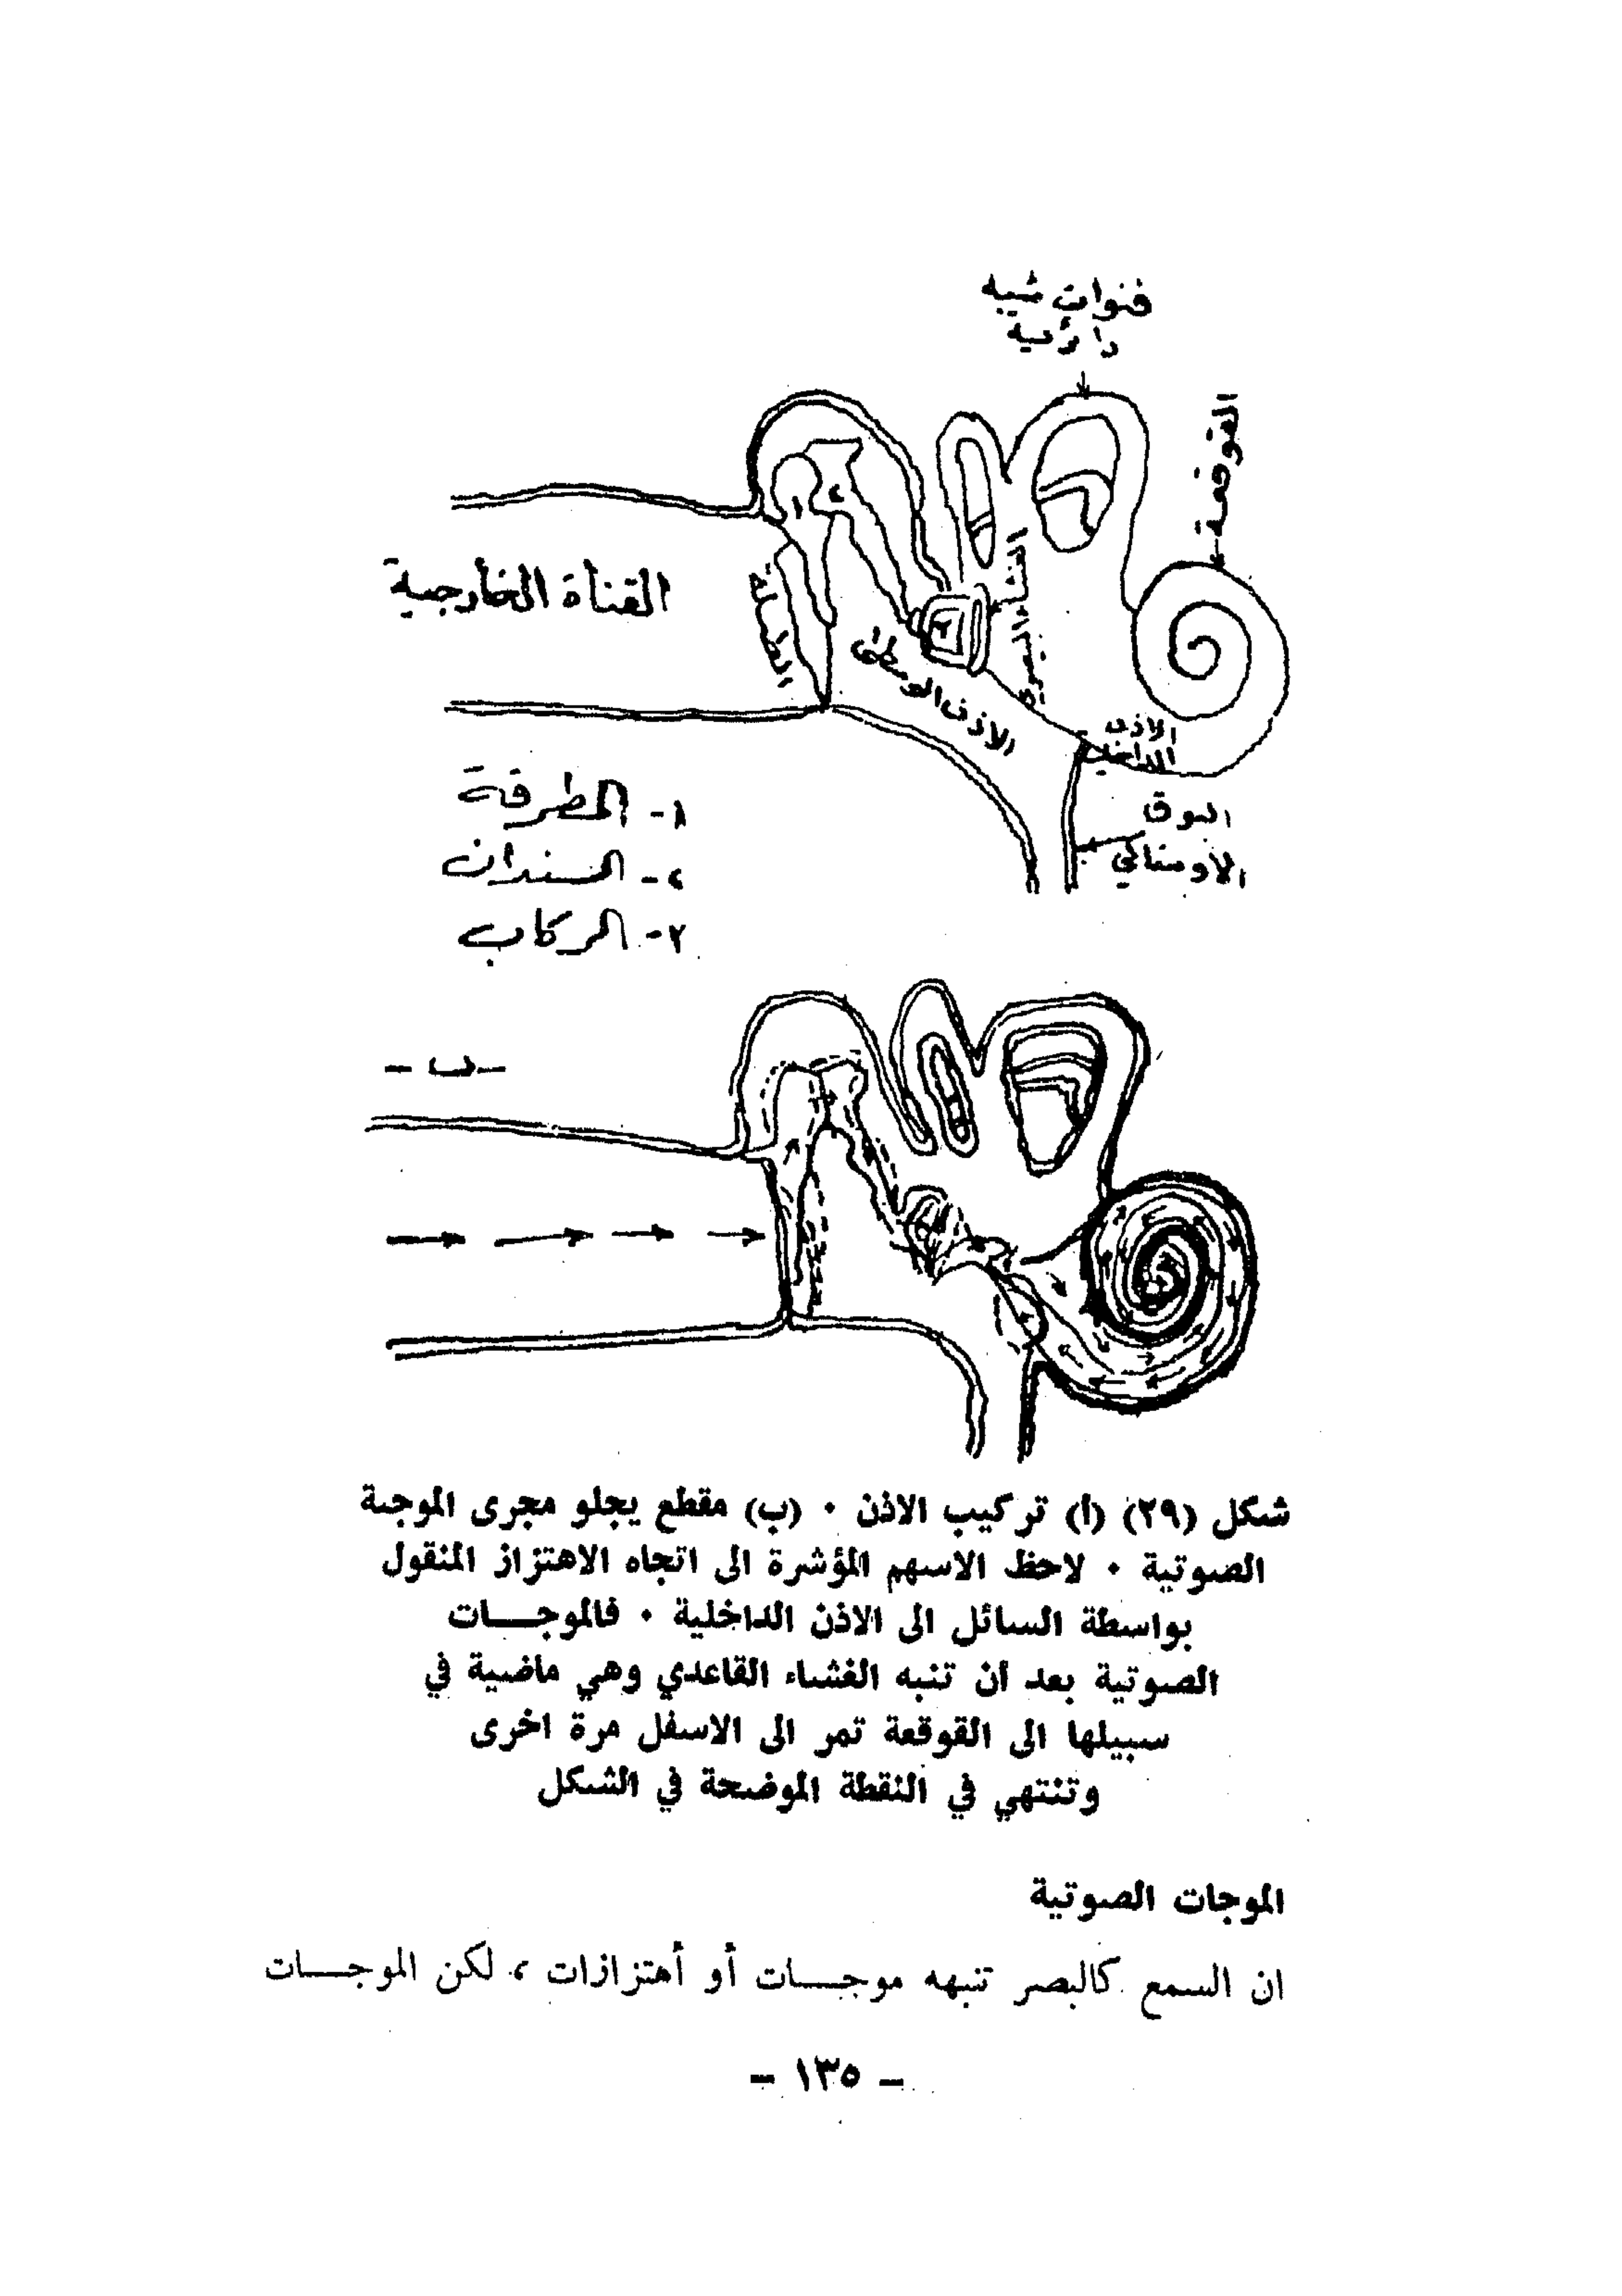 قنوات شبه
دائرية
القوقعة
القناة الخارجية
الطبلة
الاذن الوسطى
الاذن
الداخلية
البوق
الاوستاكي
١- المطرقة
٢- السندان
٣- الركاب
- ب -
شكل (٢٩) (أ) تركيب الاذن ٠ (ب) مقطع يجلو مجرى الموجة
الصوتية ٠ لاحظ الاسهم المؤشرة الى اتجاه الاهتزاز المنقول
بواسطة السائل الى الاذن الداخلية ٠ فالموجـــات
الصوتية بعد أن تنبه الغشاء القاعدي وهي ماضية في
سبيلها الى القوقعة تمر الى الاسفل مرة اخرى
وتنتهي في النقطة الموضحة في الشكل
الموجات الصوتية
ان السمع كالبصر تنبهه موجـــات أو أهتزازات ، لكن الموجـــات
- ١٣٥ -